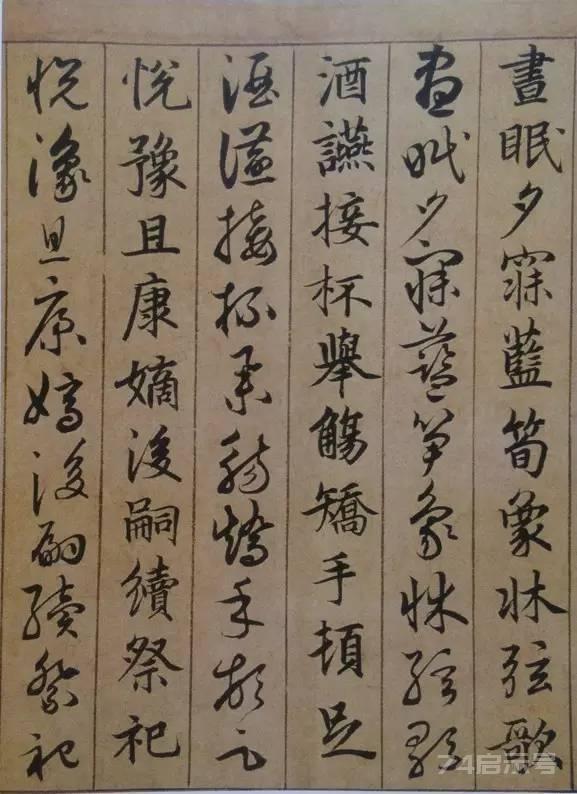 晝眠夕寐藍筍象牀弦歌
晝眠夕寐藍筍象牀弦歌
酒讌接杯舉觴矯手頓足
酒讌接杯舉觴矯手頓足
悅豫且康嫡後嗣續祭祀
悅豫且康嫡後嗣續祭祀